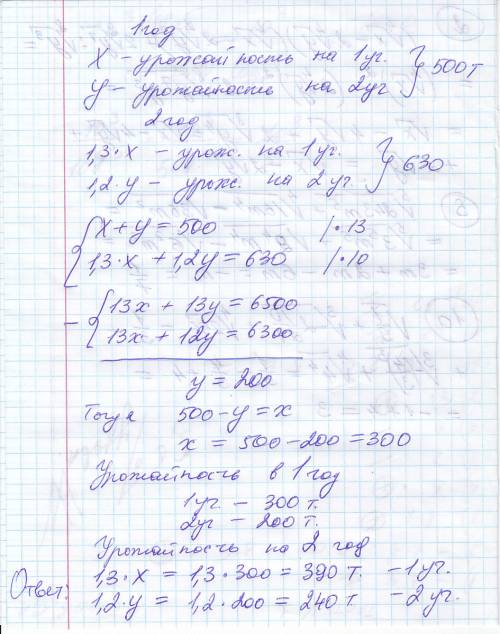 1 год
x – урожайность на 1 уч. } 500 т
y – урожайность на 2 уч
2 год
1,3·x – урож. на 1 уч. } 630
1,2·y – урож. на 2 уч.
{ x + y = 500 /·13
1,3·x + 1,2y = 630 /·10
– { 13x + 13y = 6500
13x + 12y = 6300
y = 200
Тогда 500 – y = x
x = 500 – 200 = 300
Урожайность в 1 год
1 уч – 300 т.
2 уч – 200 т.
Урожайность на 2 год
1,3·x = 1,3·300 = 390 т. – 1 уч.
Ответ: 1,2·y = 1,2·200 = 240 т. – 2 уч.